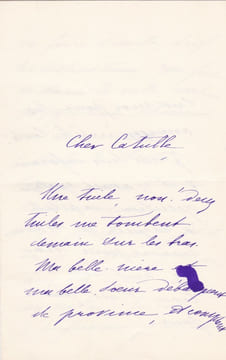 Cher Catulle,
Une tuile, non! deux
tuiles me tombent
demain sur les bras.
Ma belle mère et
ma belle soeur débarquent
de province, et comptent